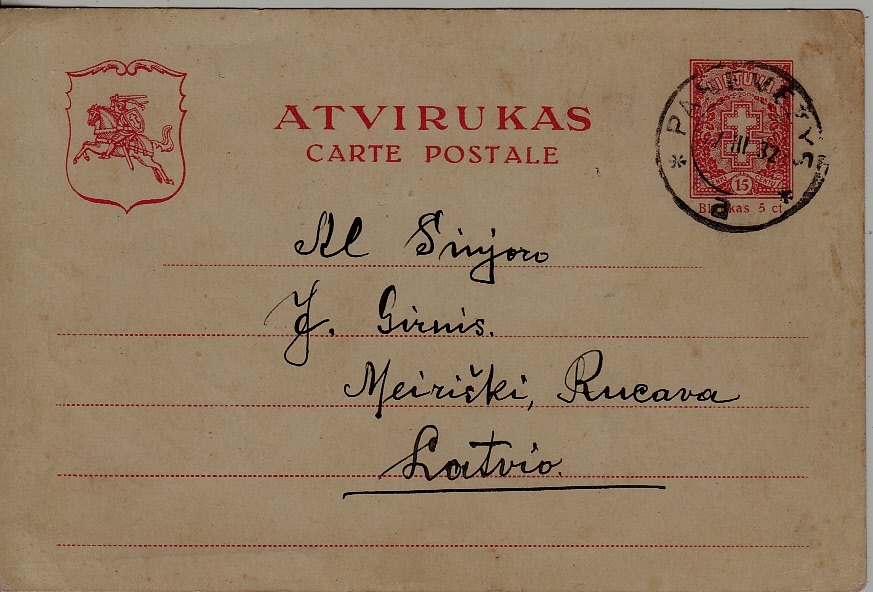 ATVIRUKAS
CARTE POSTALE
LIETUVA
15
Blankas 5 ct
PANEVĖŽYS
III 32
a
Al Sinjoro
J. Girnis.
Meiriški, Rucava
Latvio.